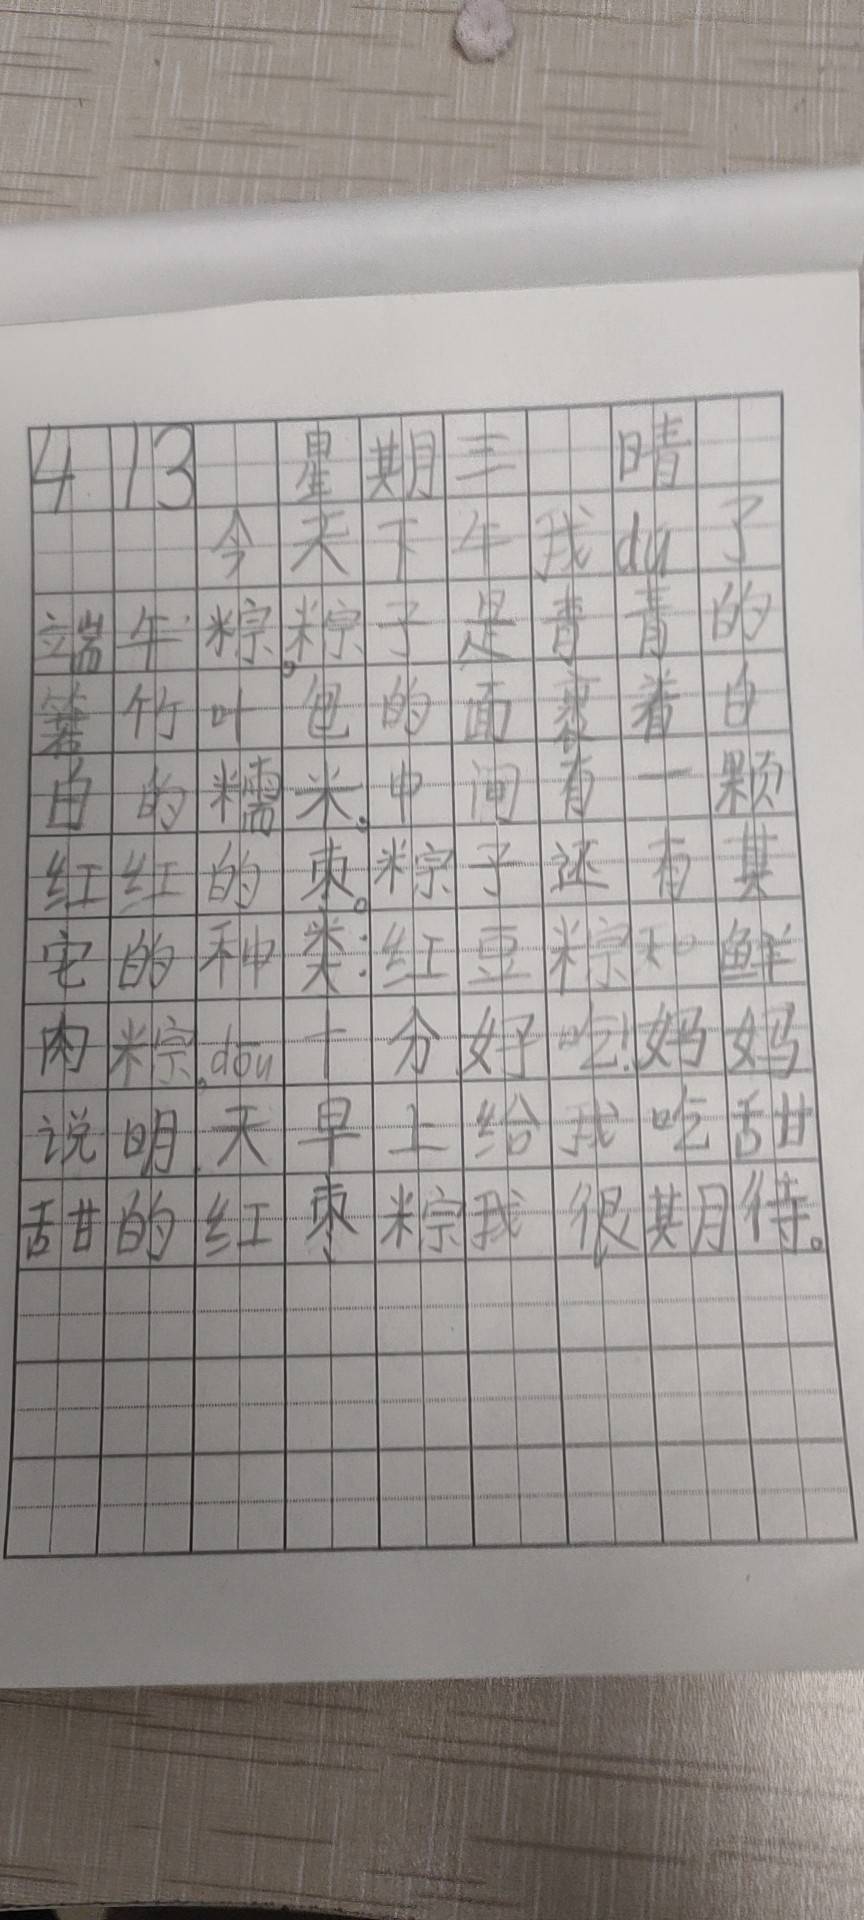 4 13 星期三 晴
今天下午我du了
端午粽,粽子是青青的
箬竹叶包的面裹着白
白的糯米。中间有一颗
红红的枣。粽子还有其
它的种类:红豆粽和鲜
肉粽,dōu十分好吃!妈妈
说明天早上给我吃甜
甜的红枣粽我很期待。